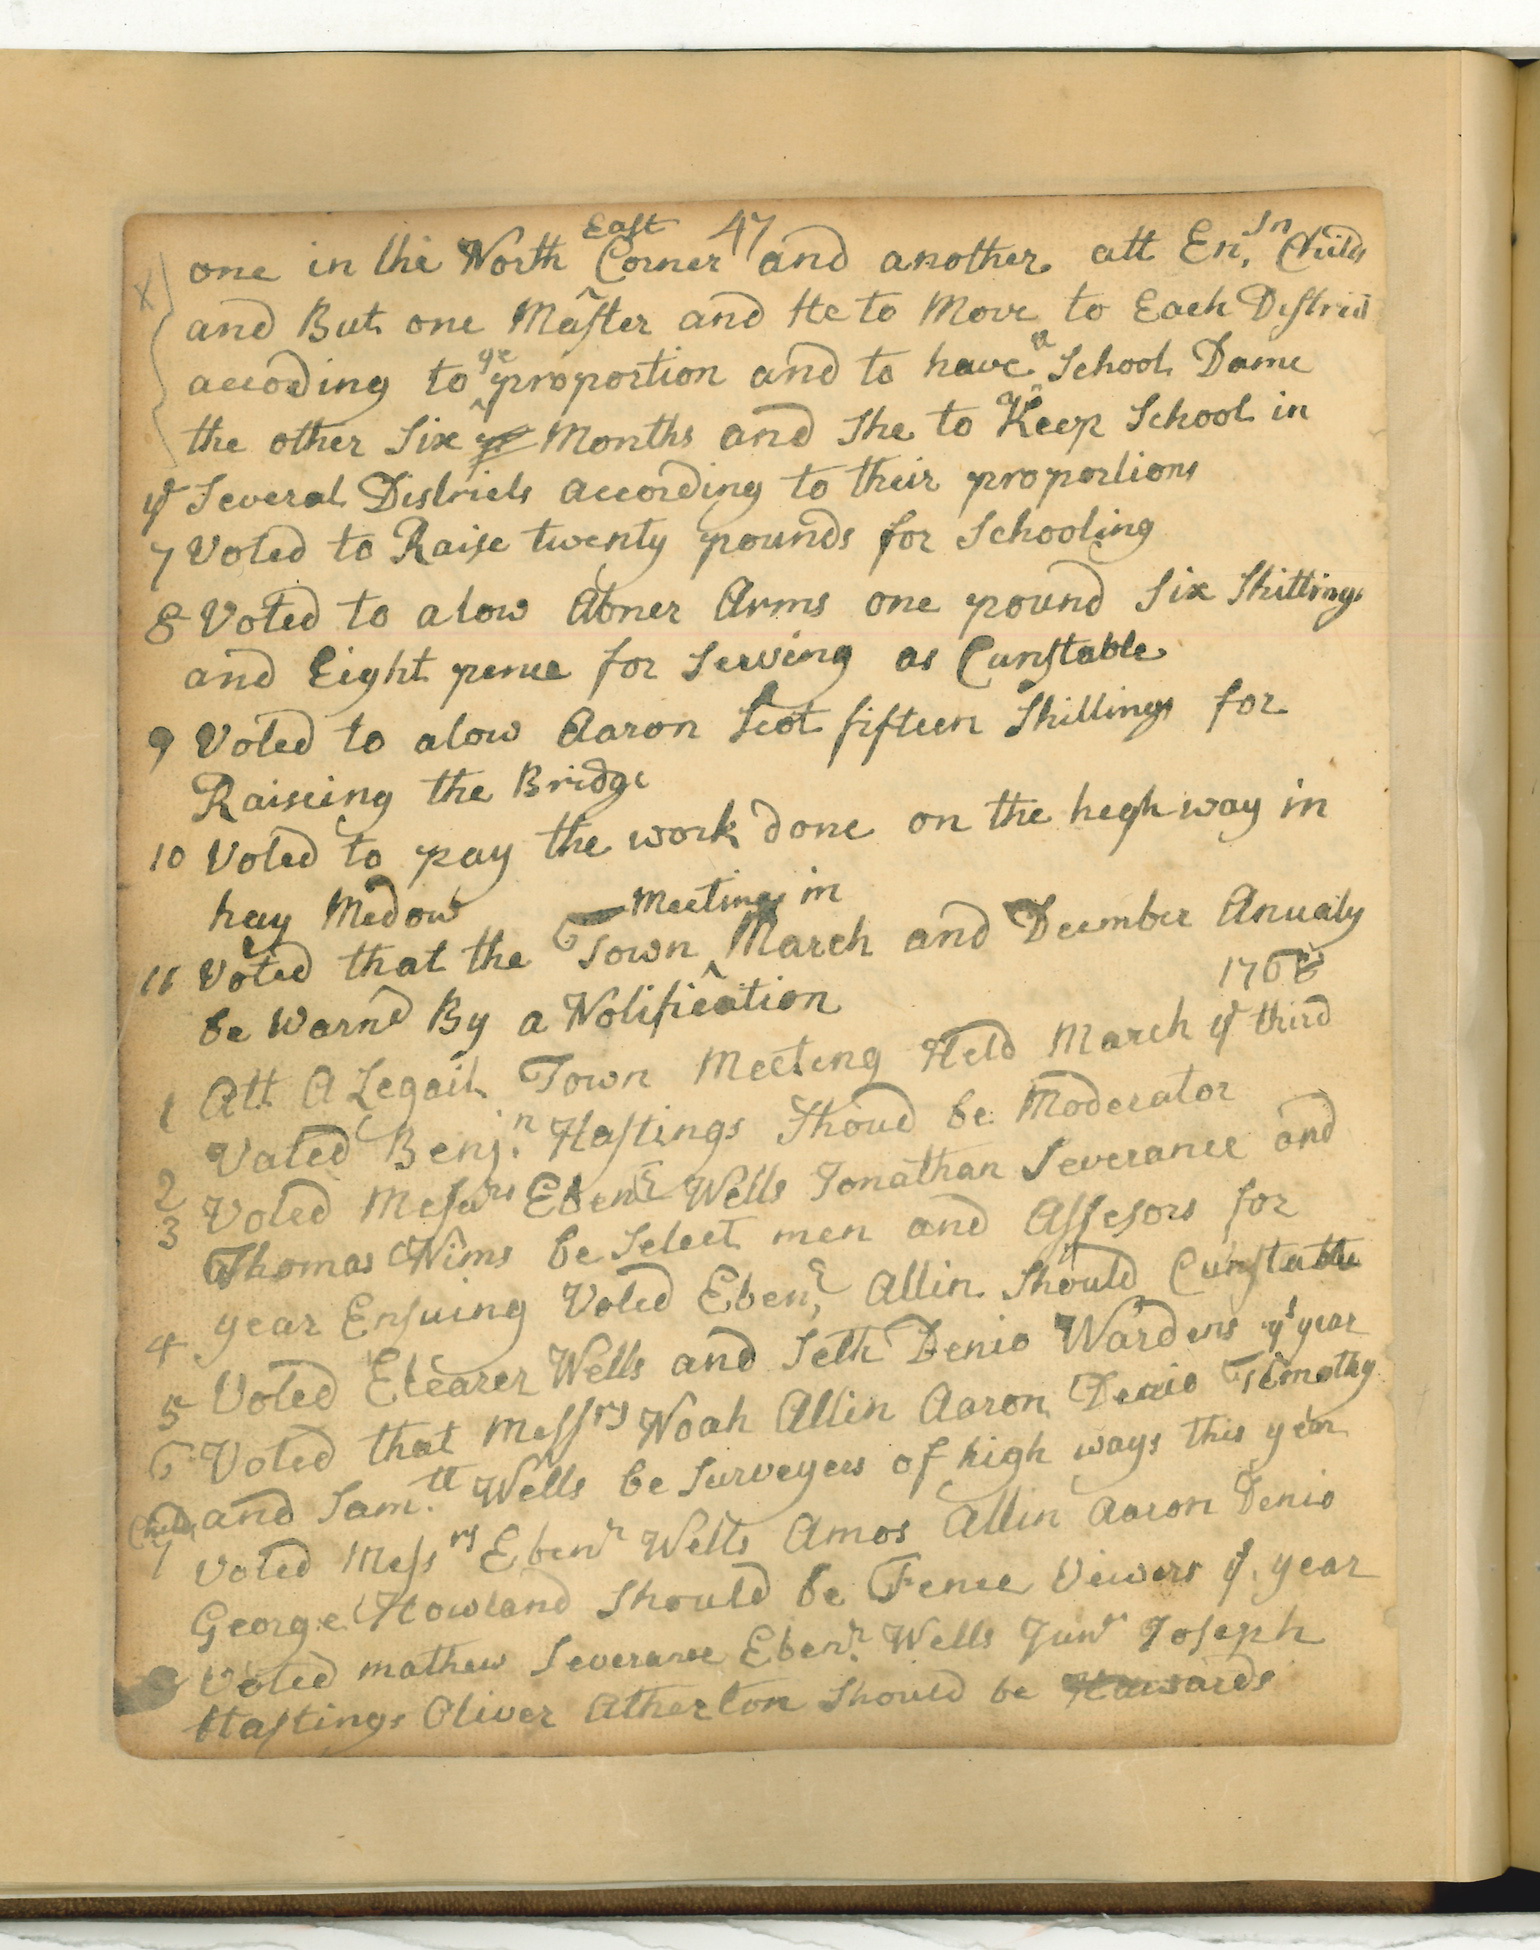 47
one in the North East Corner and another att En.sn Childs
and But one Master and He to Move to Each District
accoding to ye proportion and to have a School Dame
the other Six Months and She to Keep School in
ye Several Districts accoding to their proportions
7 Voted to Raise twenty pounds for Schooling
8 Voted to alow Abner Arms one pound Six Shillings
and Eight pence for Serving as Cunstable
9 Voted to alow Aaron Scot fifteen Shillings for
Raiseing the Bridge
10 Voted to pay the work done on the hegh way in
hay Medow
11 Voted that the Town Meetings in March and December Anualy
be Warnd By a Notification
176
1 Att A Legail Town Meeting Held March ye third
Voted Benj.n Hastings Shoud be Moderator
2 Voted Messrs Ebenr Wells Jonathan Severance and
3 Thomas Nims be Select men and Assesors for
year Ensuing Voted Ebenr Allin Should Cunstable
4 Voted Elearer Wells and Seth Denio Wardens ys year
5 Voted that Messrs Noah Allin Aaron Denio Timothy
6 Childs and Sam.ll Wells be Surveyers of high ways this year
7 Voted Messrs Ebenr Wells Amos Allin Aaron Denio
George Howland Should be Fence Viewers ye year
Voted mathew Severance Ebenr Wells Junr Joseph
Hastings Oliver Atherton Should be Hawards